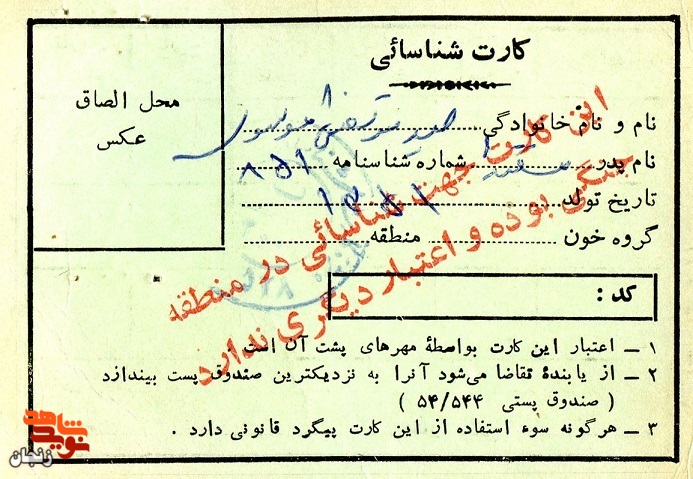 کارت شناسائی
محل الصاق
عکس
نام و نام خانوادگی
نام پدر شماره شناسنامه ۸۵۱
تاریخ تولد ۱۳۵۱
گروه خون منطقه
کد :
۱ ــ اعتبار این کارت بواسطهٔ مهرهای پشت آن است .
۲ ــ از یابندهٔ تقاضا می‌شود آنرا به نزدیکترین صندوق پست بیندازد
( صندوق پستی ۵۴/۵۴۴ )
۳ ــ هرگونه سوء استفاده از این کارت پیگرد قانونی دارد .
این کارت جهت شناسائی در منطقه
جنگی بوده و اعتبار دیگری ندارد
نوید شاهد
زنجان